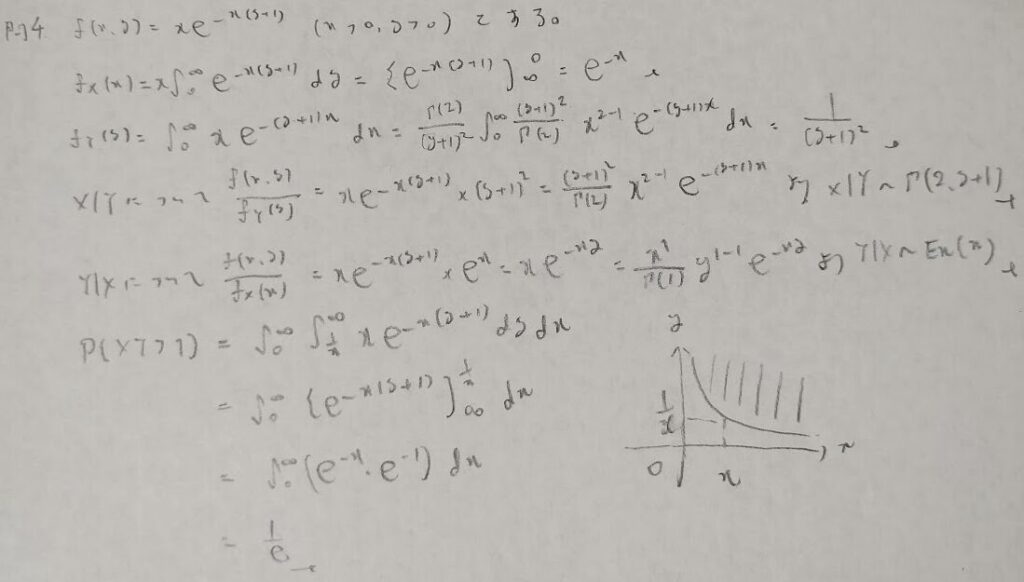 例4 f(x,y) = xe^{-x(y+1)} (x>0, y>0) とする。
f_X(x) = x∫_0^∞ e^{-x(y+1)} dy = [e^{-x(y+1)}]_∞^0 = e^{-x}
f_Y(y) = ∫_0^∞ x e^{-(y+1)x} dx = \frac{Γ(2)}{(y+1)^2} ∫_0^∞ \frac{(y+1)^2}{Γ(2)} x^{2-1} e^{-(y+1)x} dx = \frac{1}{(y+1)^2}。
X|Yについて \frac{f(x,y)}{f_Y(y)} = xe^{-x(y+1)} × (y+1)^2 = \frac{(y+1)^2}{Γ(2)} x^{2-1} e^{-(y+1)x} より X|Y ~ Γ(2, y+1)
Y|Xについて \frac{f(x,y)}{f_X(x)} = xe^{-x(y+1)} × e^x = xe^{-xy} = \frac{x^1}{Γ(1)} y^{1-1} e^{-xy} より Y|X ~ Ex(x)
P(XY>1) = ∫_0^∞ ∫_{\frac{1}{x}}^∞ xe^{-x(y+1)} dy dx
= ∫_0^∞ [e^{-x(y+1)}]_∞^{\frac{1}{x}} dx
= ∫_0^∞ (e^{-x}・e^{-1}) dx
= \frac{1}{e}
y
\frac{1}{x}
0 x x